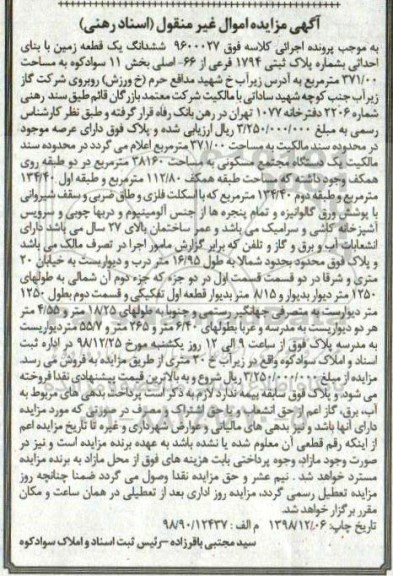 آگهی مزایده اموال غیر منقول (اسناد رهنی)
به موجب پرونده اجرائی کلاسه فوق ۹۶۰۰۰۲۷ ششدانگ یک قطعه زمین با بنای
احداثی بشماره پلاک ثبتی ۱۷۹۴ فرعی از ۶۶- اصلی بخش ۱۱ سوادکوه به مساحت
۳۷۱/۰۰ مترمربع به آدرس زیرآب خ شهید مدافع حرم (خ ورزش) روبروی شرکت گاز
زیرآب جنب کوچه شهید ساداتی با مالکیت شرکت معتمد بازرگان قائم طبق سند رهنی
شماره ۲۲۰۶ دفترخانه ۱۰۷۷ تهران در رهن بانک رفاه قرار گرفته و طبق نظر کارشناس
رسمی به مبلغ ۳/۲۵۰/۰۰۰/۰۰۰ ریال ارزیابی شده و پلاک فوق دارای عرصه موجود
در محدوده سند مالکیت به مساحت ۳۷۱/۰۰ مترمربع اعلام می گردد در محدوده سند
مالکیت یک دستگاه مجتمع مسکونی به مساحت ۳۸۱۶۰ مترمربع در دو طبقه روی
همکف وجود داشته که مساحت طبقه همکف ۱۱۲/۸۰ مترمربع و طبقه اول ۱۳۴/۴۰
مترمربع و طبقه دوم ۱۳۴/۴۰ مترمربع که با اسکلت فلزی و طاق ضربی و سقف شیروانی
با پوشش ورق گالوانیزه و تمام پنجره ها از جنس آلومینیوم و دربها چوبی و سرویس
آشپزخانه کاشی و سرامیک می باشد و عمر ساختمان بالای ۲۷ سال می باشد دارای
انشعابات آب و برق و گاز و تلفن که برابر گزارش مامور اجرا در تصرف مالک می باشد
و پلاک فوق محدود بحدود شمالا به طول ۱۶/۹۵ متر درب و دیواریست به خیابان ۲۰
متری و شرقا در دو قسمت قسمت اول در دو جزء که جزء دوم آن شمالی به طولهای
۱۲۵۰ متر دیوار بدیوار و ۸/۱۵ متر بدیوار قطعه اول تفکیکی و قسمت دوم بطول ۱۲۵۰
متر دیواریست به متصرفی جهانگیر رستمی و جنوبا به طولهای ۱۸/۲۵ متر و ۴/۵۵ متر
هر دو دیواریست به مدرسه و غربا بطولهای ۶/۴۰ متر و ۲۶۵ متر و ۵۵/۷ متر دیواریست
به مدرسه پلاک فوق از ساعت ۹ الی ۱۲ روز یکشنبه مورخ ۹۸/۱۲/۲۵ در اداره ثبت
اسناد و املاک سوادکوه واقع در زیرآب خ ۳۰ متری از طریق مزایده به فروش می رسد.
مزایده از مبلغ ۳/۲۵۰/۰۰۰/۰۰۰ ریال شروع و به بالاترین قیمت پیشنهادی نقدا فروخته
می شود. و پلاک فوق سابقه بیمه ندارد لازم به ذکر است پرداخت بدهی های مربوط به
آب، برق، گاز اعم از حق انشعاب و یا حق اشتراک و مصرف در صورتی که مورد مزایده
دارای آنها باشد و نیز بدهی های مالیاتی و عوارض شهرداری و غیره تا تاریخ مزایده اعم
از اینکه رقم قطعی آن معلوم شده یا نشده باشد به عهده برنده مزایده است و نیز در
صورت وجود مازاد، وجوه پرداختی بابت هزینه های فوق از محل مازاد به برنده مزایده
مسترد خواهد شد. نیم عشر و حق مزایده نقدا وصول می گردد ضمنا چنانچه روز
مزایده تعطیل رسمی گردد، مزایده روز اداری بعد از تعطیلی در همان ساعت و مکان
مقرر برگزار خواهد شد.
تاریخ چاپ: ۱۳۹۸/۱۲/۰۶ م الف: ۹۸/۹۰/۱۲۴۳۷
سید مجتبی باقرزاده –رئیس ثبت اسناد و املاک سوادکوه